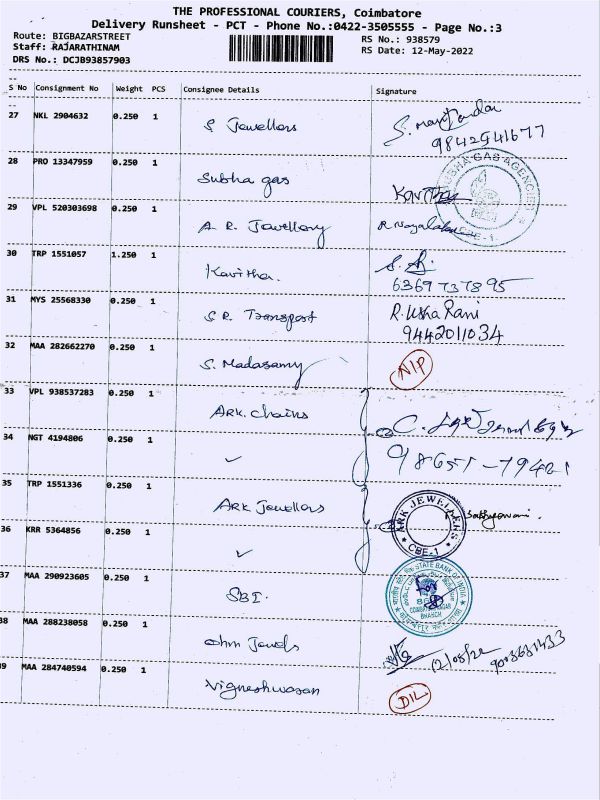 THE PROFESSIONAL COURIERS, Coimbatore
Delivery Runsheet - PCT - Phone No.:0422-3505555 - Page No.:3
Route: BIGBAZARSTREET RS No.: 938579
Staff: RAJARATHINAM RS Date: 12-May-2022
DRS No.: DCJB93857903
S No Consignment No Weight PCS Consignee Details Signature
27 NKL 2904632 0.250 1 S Jewellors
9842541677
28 PRO 13347959 0.250 1 Subha gas Kavitha
SUBHA GAS AGENCIES CBE-1
29 VPL 520303698 0.250 1 A. R. Jewellery
30 TRP 1551057 1.250 1 Kavitha. S.R.
6369737895
31 MYS 25568330 0.250 1 S R Transport R. Usha Rani
9442011034
32 MAA 282662270 0.250 1 S. Madasamy NIP
33 VPL 938537283 0.250 1 ARK. Chains
34 NGT 4194806 0.250 1 ✓ 98651-79421
35 TRP 1551336 0.250 1 ARK Jewellors
ARK JEWELLERS CBE-1
36 KRR 5364856 0.250 1 ✓
37 MAA 290923605 0.250 1 SBI.
STATE BANK OF INDIA BRANCH
38 MAA 288238058 0.250 1 Ohm Jewels 12/05/22
39 MAA 284740594 0.250 1 Vigneshwaran DIL